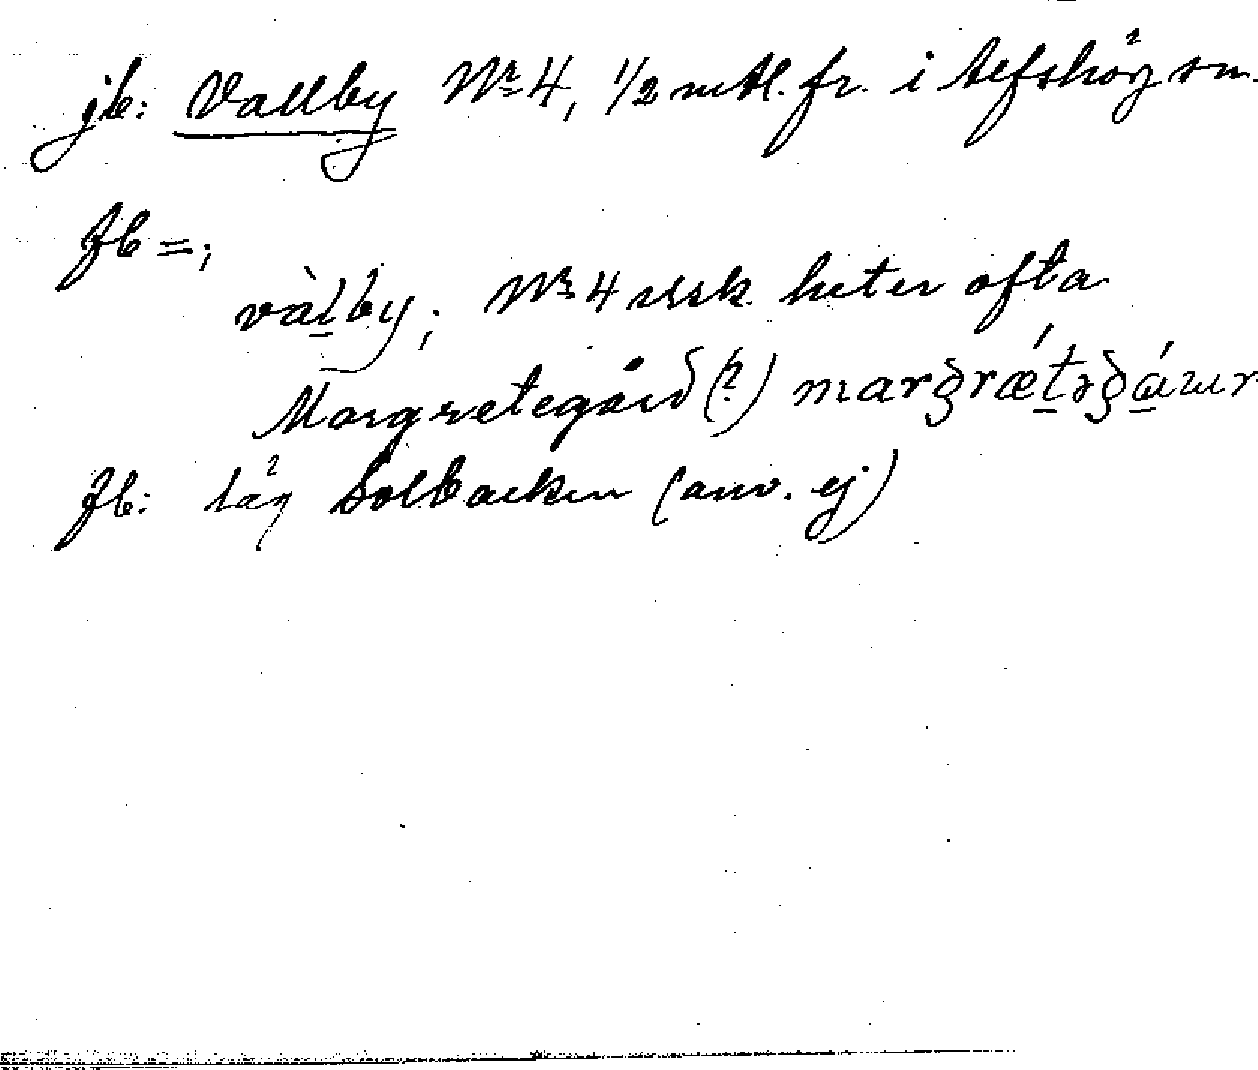 jb: Vallby Nr 4, 1/2 mtl. fr. i Alfshög sn.
fb =;
vàlby; Nr 4 ssk. heter ofta
Margretegård (?)
fb: låg Solbacken (anv. ej)